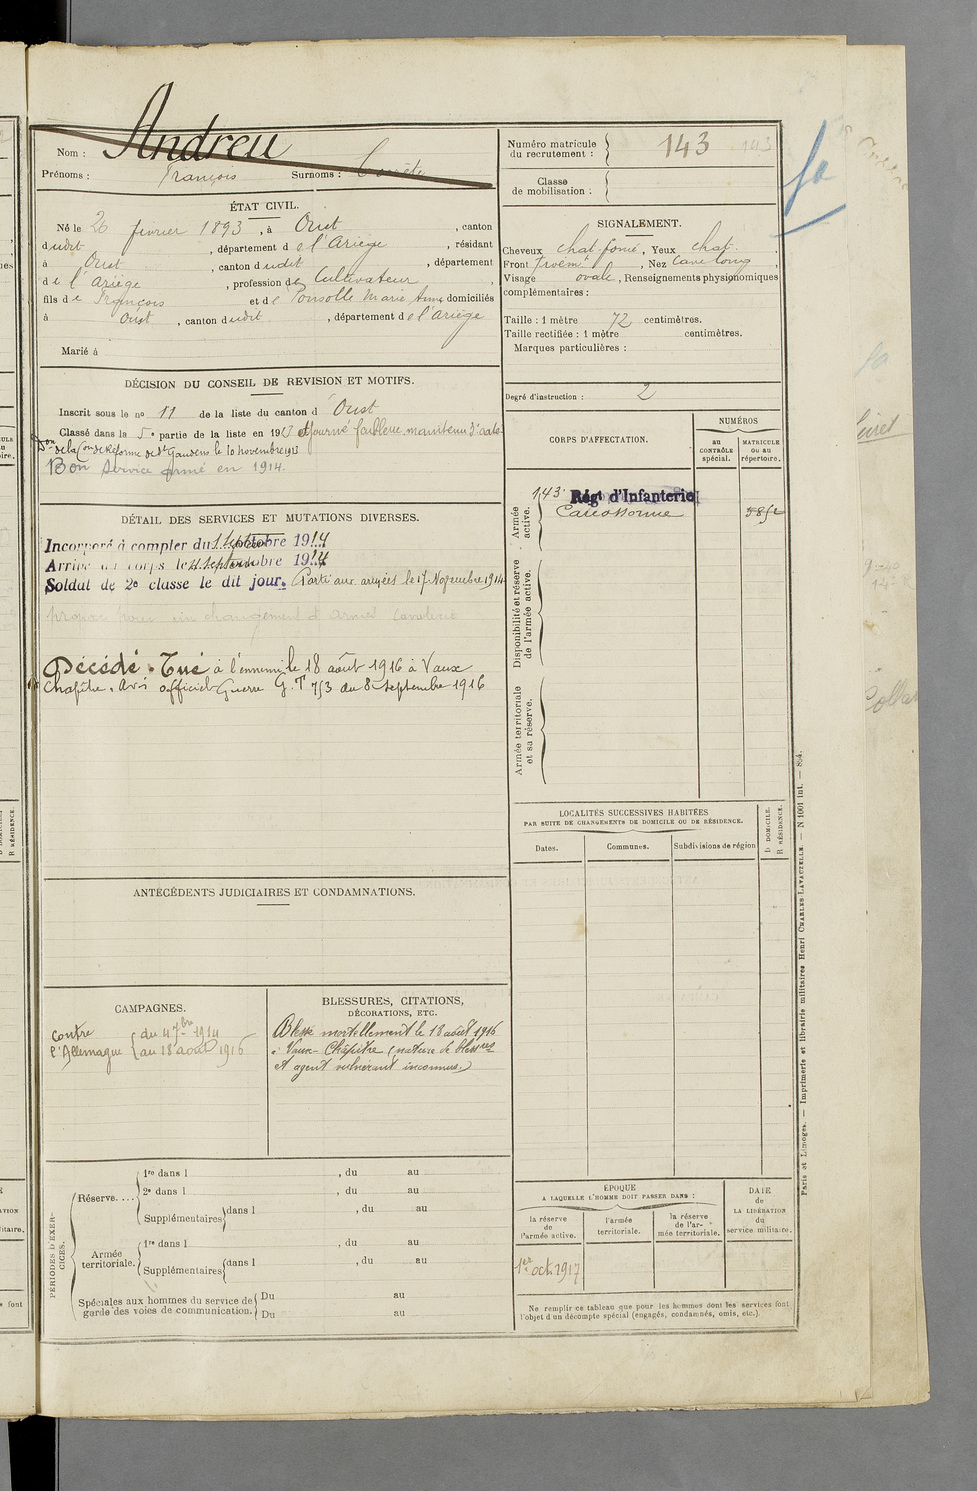 Nom : Andreu
Prénoms : François Surnoms :
Numéro matricule du recrutement : 143
Classe de mobilisation :
ÉTAT CIVIL.
Né le 26 février 1893, à Oust, canton
dudit, département de l'Ariège, résidant
à Oust, canton dudit, département
de l'Ariège, profession de Cultivateur,
fils de François et de Ponsolle Marie Anne domiciliés
à Oust, canton dudit, département de l'Ariège
Marié à
SIGNALEMENT.
Cheveux chat. foncé, Yeux chat.
Front , Nez Cave long,
Visage ovale, Renseignements physionomiques
complémentaires :
Taille : 1 mètre 72 centimètres.
Taille rectifiée : 1 mètre centimètres.
Marques particulières :
Degré d'instruction : 2
DÉCISION DU CONSEIL DE REVISION ET MOTIFS.
Inscrit sous le no 11 de la liste du canton d Oust
Classé dans la 5e partie de la liste en 1913 Ajourné faiblesse maintenu
Don de la Con de Réforme de St Gaudens le 10 novembre 1913
Bon Service armé en 1914.
DÉTAIL DES SERVICES ET MUTATIONS DIVERSES.
Incorporé à compter du 1914
Arrivé au corps le 4 septembre 1914
Soldat de 2e classe le dit jour. Parti aux armées le 17 Novembre 1914
proposé pour un changement d'armes Cavalerie
Décédé. Tué à l'ennemi le 18 août 1916 à Vaux
Chapître. Avis officiel Guerre G.T 753 du 8 septembre 1916
CORPS D'AFFECTATION.
NUMÉROS
au CONTRÔLE spécial.
MATRICULE OU AU répertoire.
Armée active.
143 Régt d'Infanterie
Carcassonne 5852
Disponibilité et réserve de l'armée active.
Armée territoriale et sa réserve.
LOCALITÉS SUCCESSIVES HABITÉES
PAR SUITE DE CHANGEMENTS DE DOMICILE OU DE RÉSIDENCE.
Dates. Communes. Subdivisions de région
D DOMICILE. R RÉSIDENCE.
ANTÉCÉDENTS JUDICIAIRES ET CONDAMNATIONS.
CAMPAGNES.
Contre l'Allemagne
du 4 7bre 1914
au 18 août 1916
BLESSURES, CITATIONS,
DÉCORATIONS, ETC.
Blessé mortellement le 18 août 1916
à Vaux-Chapitre (nature de blessures
et agent vulnérant inconnus.)
PÉRIODES D'EXERCICES.
Réserve....
1re dans l , du au
2e dans l , du au
Supplémentaires dans l , du au
Armée territoriale.
1re dans l , du au
Supplémentaires dans l , du au
Spéciales aux hommes du service de garde des voies de communication.
Du au
Du au
ÉPOQUE
A LAQUELLE L'HOMME DOIT PASSER DANS :
la réserve de l'armée active.
l'armée territoriale.
la réserve de l'armée territoriale.
DATE de LA LIBÉRATION du service militaire.
1er oct. 1917
Ne remplir ce tableau que pour les hommes dont les services font
l'objet d'un décompte spécial (engagés, condamnés, omis, etc.).
Paris et Limoges. — Imprimerie et librairie militaires Henri CHARLES-LAVAUZELLE. — N 1001 int. — 864.